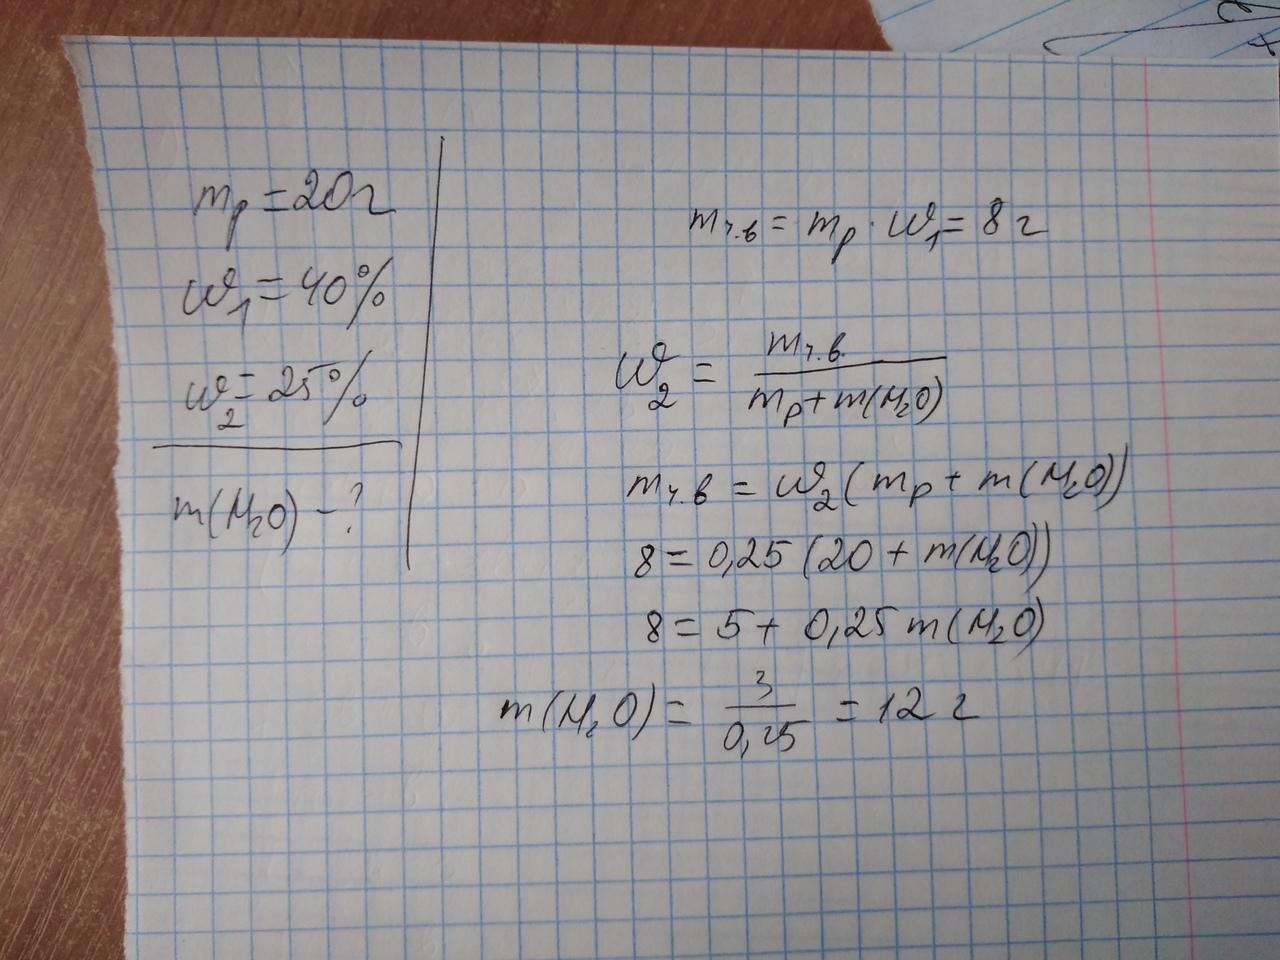 mр = 20 г
ω₁ = 40%
ω₂ = 25%
m(H₂O) - ?
mч.в = mр · ω₁ = 8 г
ω₂ = mч.в. / mр + m(H₂O)
mч.в = ω₂(mр + m(H₂O))
8 = 0,25 (20 + m(H₂O))
8 = 5 + 0,25 m(H₂O)
m(H₂O) = 3 / 0,25 = 12 г